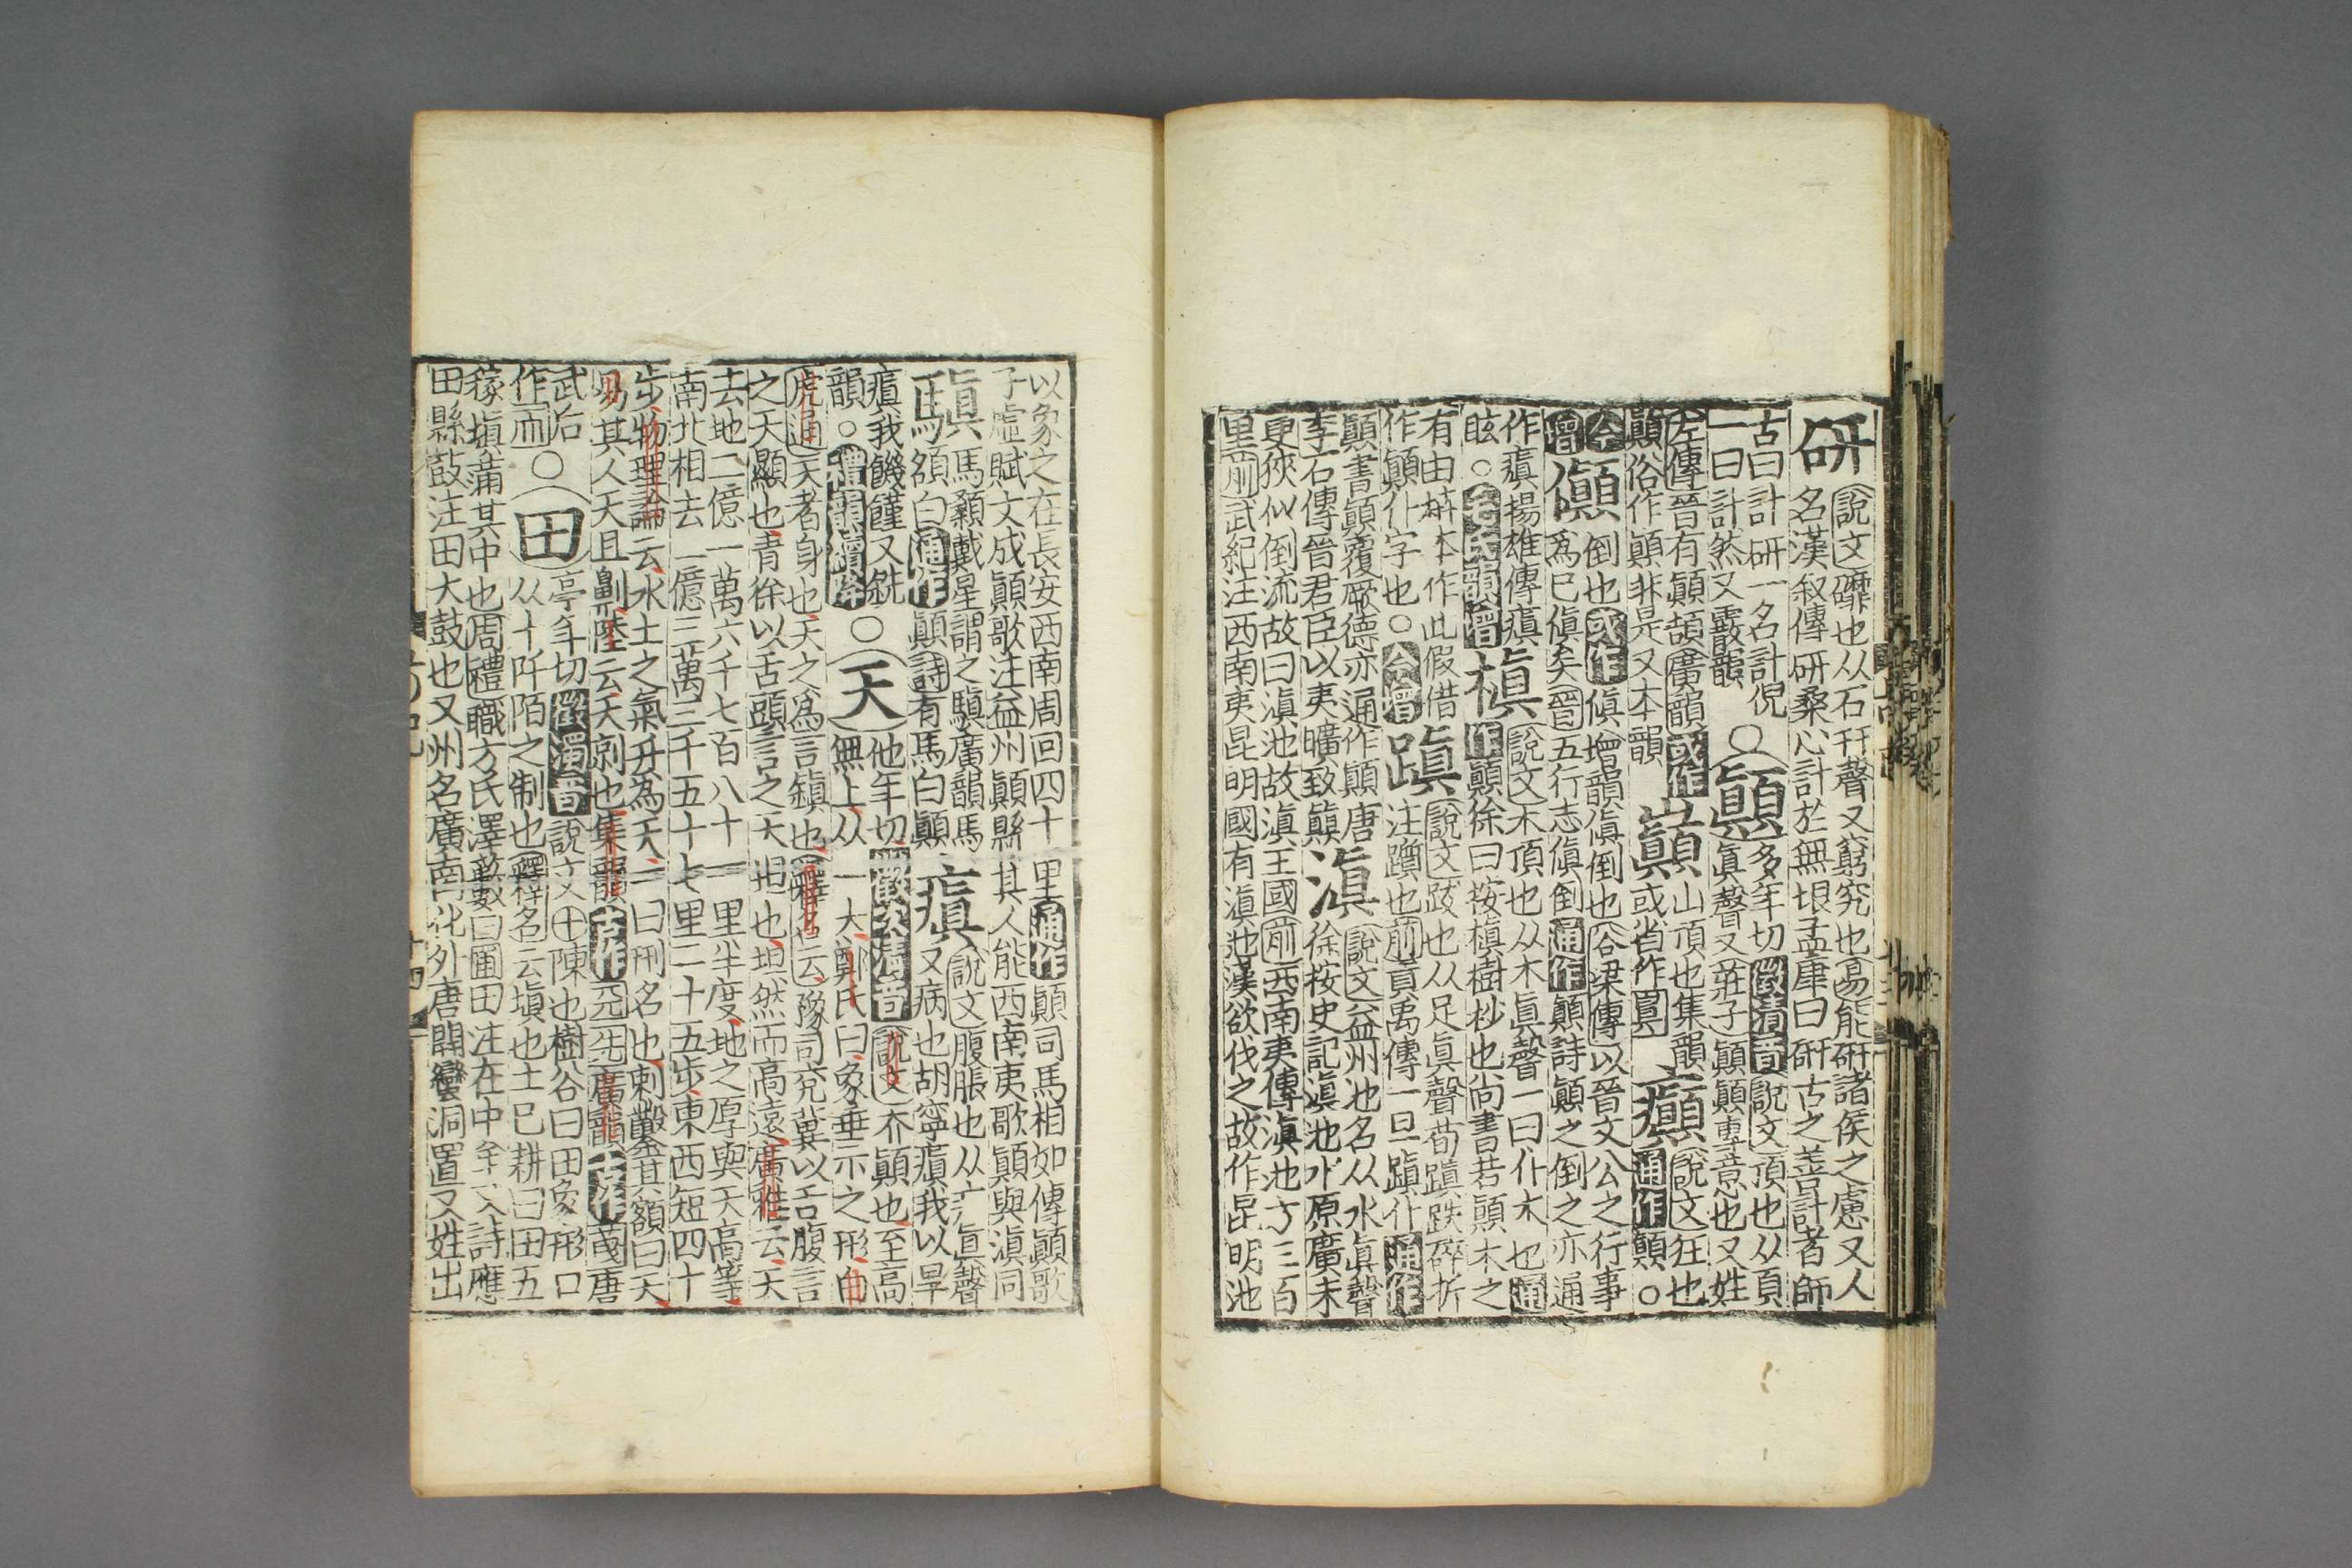 研
説文䃺也从石幵聲又窮究也易能研諸侯之慮又人
名漢叙傳研桑心計於無垠孟康曰研古之善計者師
古曰計研一名計倪
一曰計然又霰韻
○顚
多年切徵清音説文頂也从頁
眞聲又莊子顚顚專意也又姓
左傳晉有顚頡廣韻或作
顚俗作顛非是又本韻
巔
山頂也集韻
或省作
癲
説文狂也
通作顚○
今
增
傎
倒也或作傎增韻傎倒也谷梁傳以晉文公之行事
爲已傎矣晉五行志傎倒通作顚詩顚之倒之亦通
作瘨揚雄傳瘨
眩○毛氏韻增
槙
説文木頂也从木眞聲一曰仆木也通
作顚徐曰按槙樹杪也尚書若顚木之
有由蘖本作此假借
作顚仆字也○今增
蹎
説文跋也从足眞聲荀蹎跌碎折
注躓也前貢禹傳一旦蹎仆通作
顚書顚覆厥德亦通作顚唐
李石傳晉君臣以夷曠致顚
滇
説文益州池名从水眞聲
徐按史記滇池水原廣末
更狹似倒流故曰滇池故滇王國前西南夷傳滇池方三百
里前武紀注西南夷昆明國有滇池漢欲伐之故作昆明池
以象之在長安西南周回四十里通作顚司馬相如傳顚歌
子虛賦文成顚歌注益州顚縣其人能西南夷歌顚與滇同
騵
馬顙戴星謂之驥廣韻馬
額白通作顚詩有馬白顚
瘨
説文腹脹也从疒眞聲
又病也胡寧瘨我以旱
瘨我饑饉又銑
韻○禮韻續降
○天
他年切徵次清音説文天顚也至高
無上从一大鄭氏曰象垂示之形白
虎通天者身也天之爲言鎮也釋名云豫司兖冀以舌腹言
之天顯也青徐以舌頭言之天坦也坦然而高遠廣雅云天
去地二億一萬六千七百八十一里半度地之厚與天高等
南北相去一億三萬三千五十七里二十五步東西短四十
步物理論云水土之氣升爲天一曰刑名也刺鑿其額曰天
易其人天且劓陸云天剠也集韻古作兂兂廣韻古作𠑺唐
武后
作而
○田
亭年切徵濁音説文田陳也樹谷曰田象形口
从十阡陌之制也釋名云塡也土已耕曰田五
稼塡滿其中也周禮職方氏澤藪曰圃田注在中牟又詩應
田縣鼓注田大鼓也又州名廣南西化外唐開蠻洞置又姓出